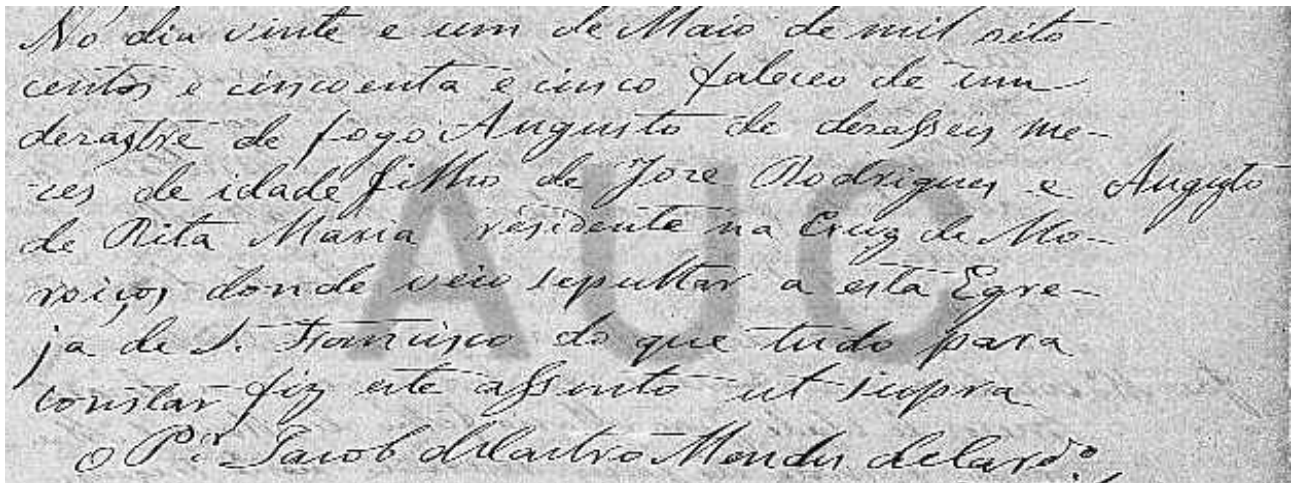 No dia vinte e um de Maio de mil oito
centos e cincoenta e cinco faleceo de um
derastre de fogo Augusto de derasseis me-
ces de idade filho de Joze Rodrigues e Augusto
de Rita Maria residente na Cruz de Mo-
roiços donde veio sepultar a esta Egre-
ja de S. Francisco do que tudo para
constar fiz este assento ut supra
O P.e Jacob de Castro Mendes
AUC